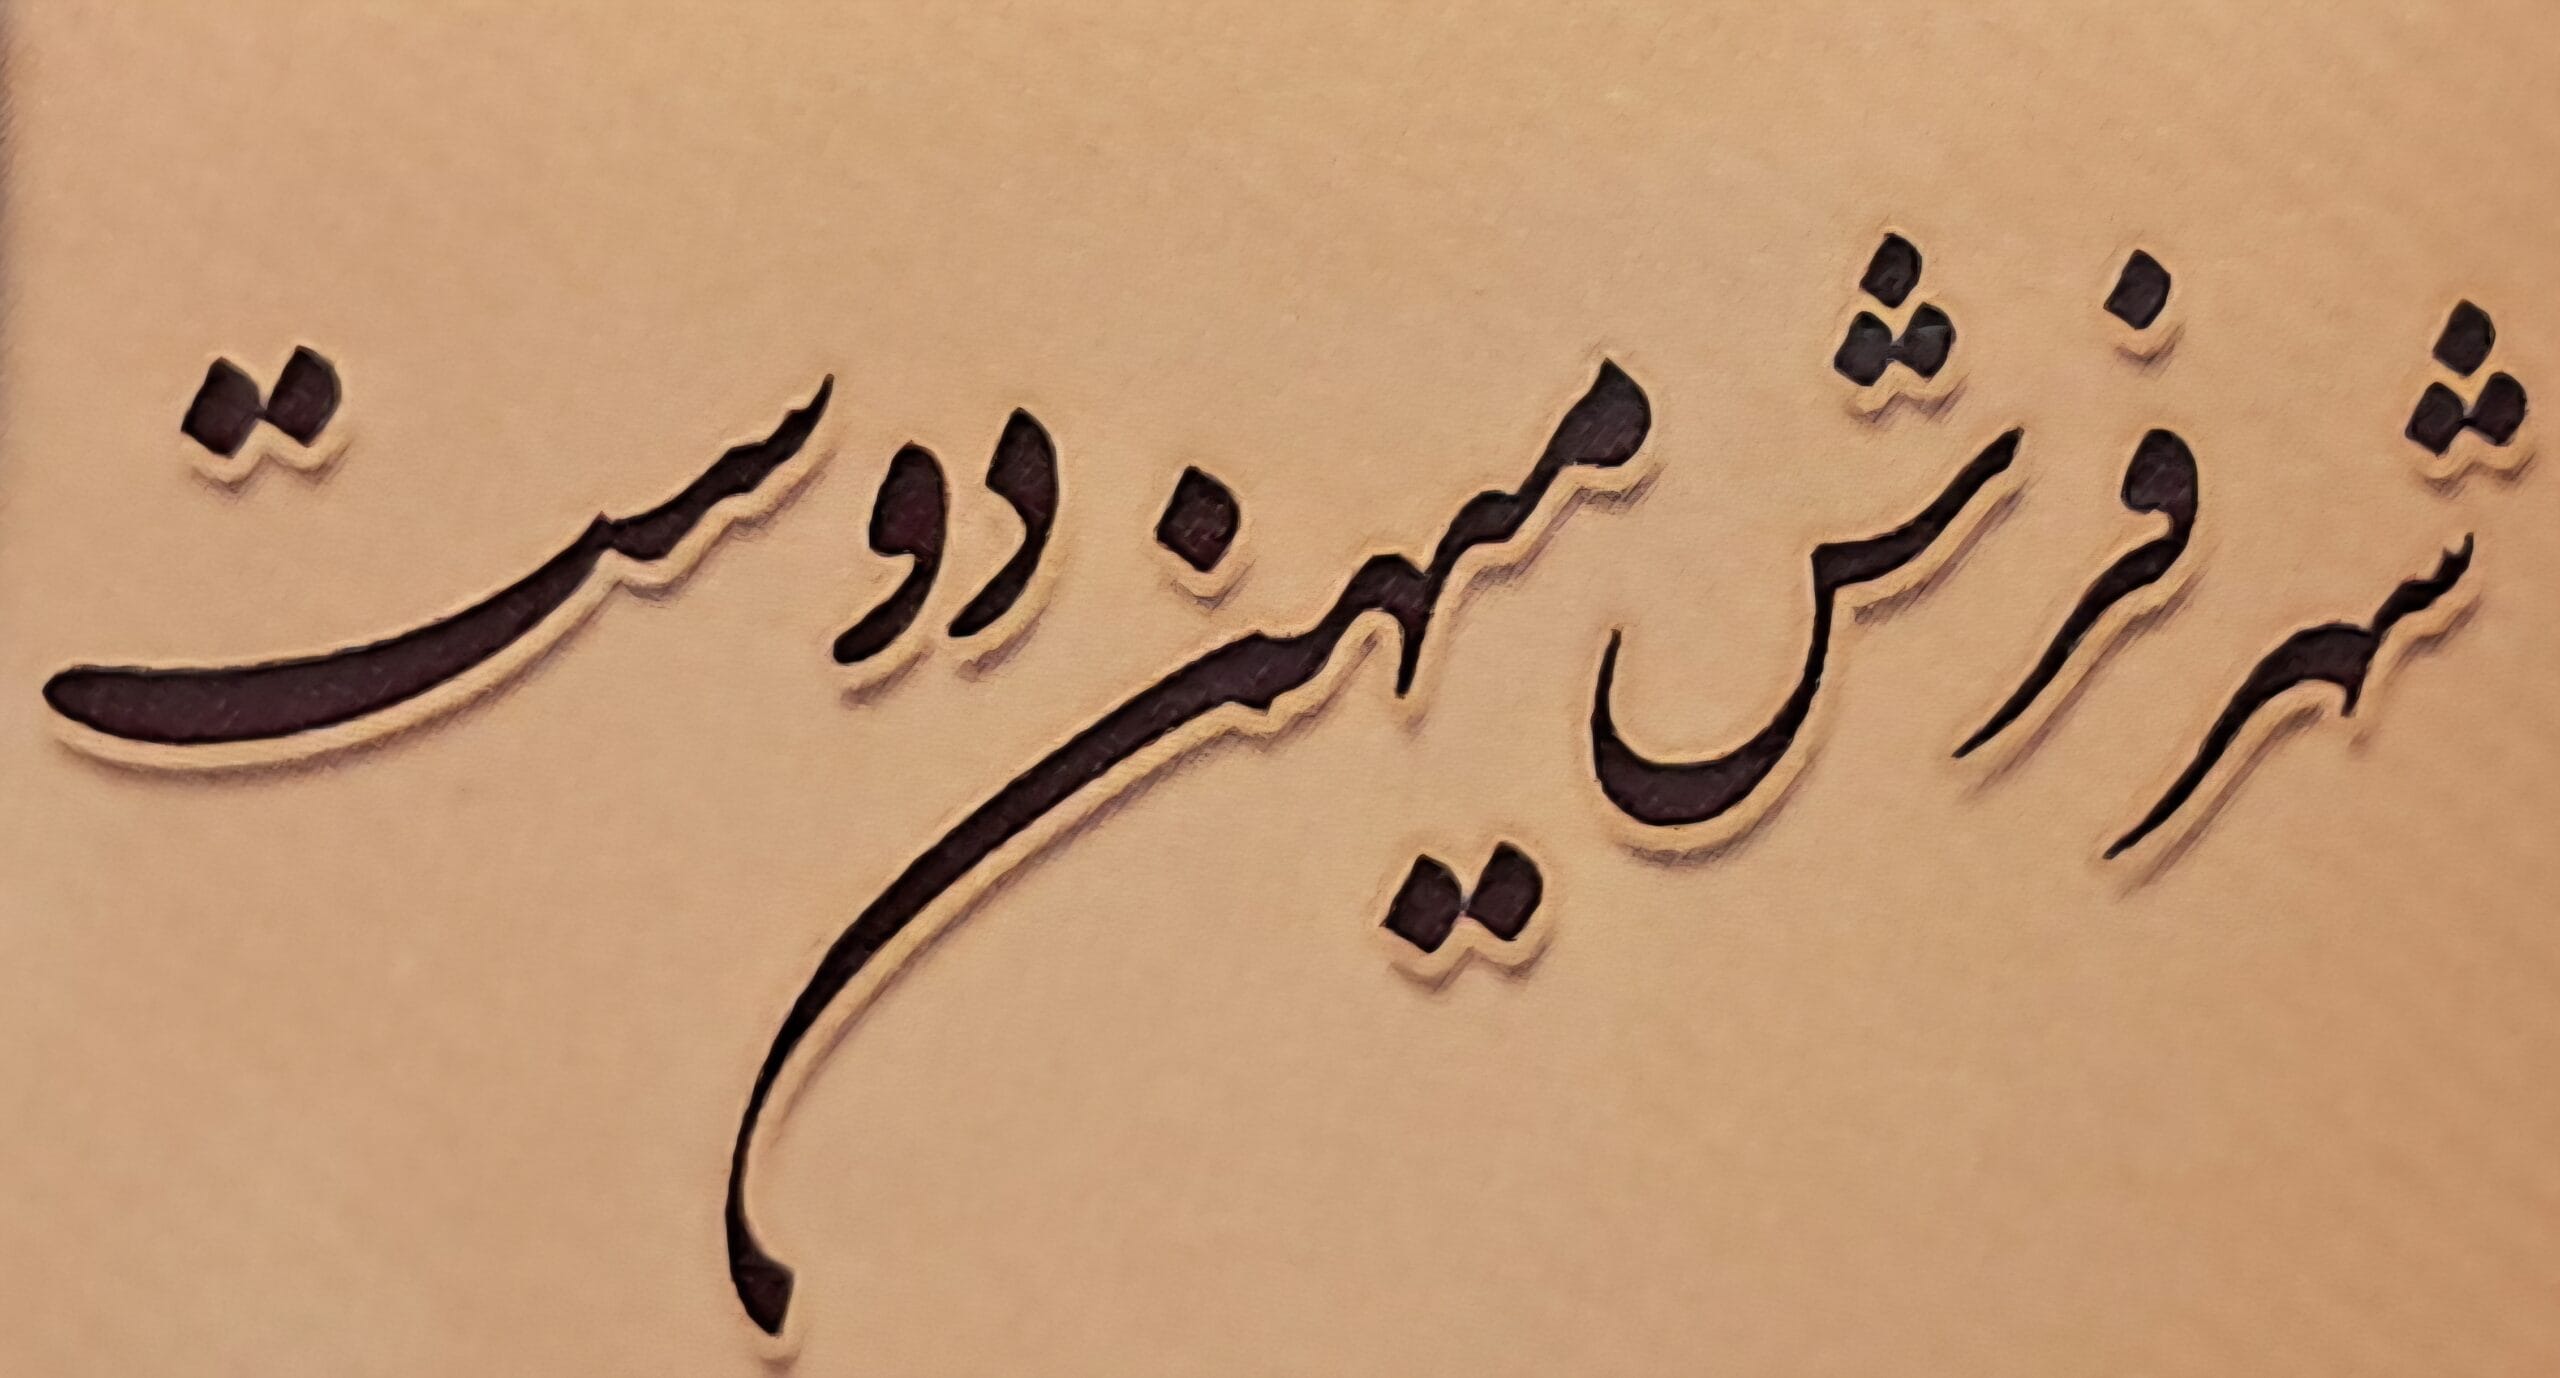 شهر فرش میهن دوست